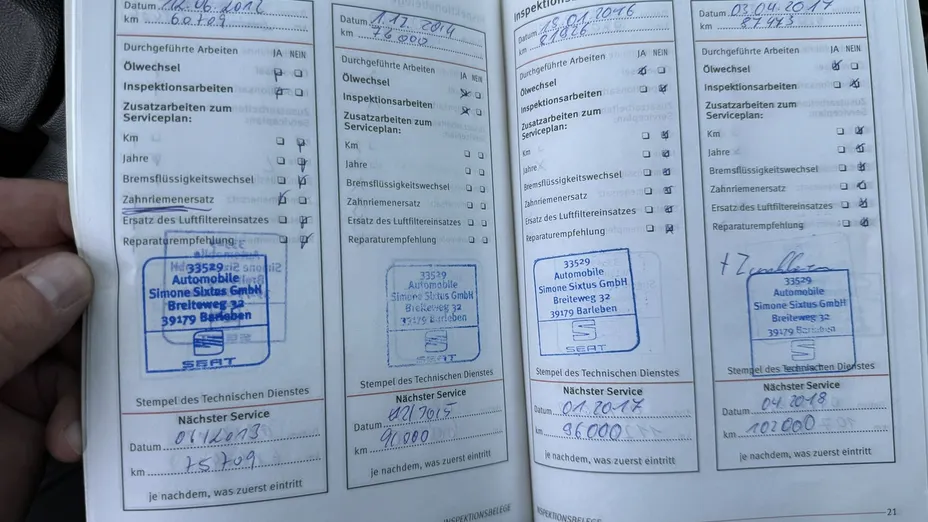 Datum 12.06.2012
km 60709
Durchgeführte Arbeiten JA NEIN
Ölwechsel
Inspektionsarbeiten
Zusatzarbeiten zum
Serviceplan:
Km
Jahre
Bremsflüssigkeitswechsel
Zahnriemenersatz
Ersatz des Luftfiltereinsatzes
Reparaturempfehlung
33529
Automobile
Simone Sixtus GmbH
Breiteweg 32
39179 Barleben
SEAT
Stempel des Technischen Dienstes
Nächster Service
Datum 06/2013
km 75709
je nachdem, was zuerst eintritt
Datum 1.12.2014
km 76000
Durchgeführte Arbeiten JA NEIN
Ölwechsel
Inspektionsarbeiten
Zusatzarbeiten zum
Serviceplan:
Km
Jahre
Bremsflüssigkeitswechsel
Zahnriemenersatz
Ersatz des Luftfiltereinsatzes
Reparaturempfehlung
33529
Automobile
Simone Sixtus GmbH
Breiteweg 32
39179 Barleben
SEAT
Stempel des Technischen Dienstes
Nächster Service
Datum 12/2015
km 91000
je nachdem, was zuerst eintritt
INSPEKTIONSBELEGE
Datum 19.01.2016
km 81826
Durchgeführte Arbeiten JA NEIN
Ölwechsel
Inspektionsarbeiten
Zusatzarbeiten zum
Serviceplan:
Km
Jahre
Bremsflüssigkeitswechsel
Zahnriemenersatz
Ersatz des Luftfiltereinsatzes
Reparaturempfehlung
33529
Automobile
Simone Sixtus GmbH
Breiteweg 32
39179 Barleben
SEAT
Stempel des Technischen Dienstes
Nächster Service
Datum 01.2017
km 96000
je nachdem, was zuerst eintritt
Datum 03.04.2017
km 87473
Durchgeführte Arbeiten JA NEIN
Ölwechsel
Inspektionsarbeiten
Zusatzarbeiten zum
Serviceplan:
Km
Jahre
Bremsflüssigkeitswechsel
Zahnriemenersatz
Ersatz des Luftfiltereinsatzes
Reparaturempfehlung
33529
Automobile
Simone Sixtus GmbH
Breiteweg 32
39179 Barleben
Stempel des Technischen Dienstes
Nächster Service
Datum 04.2018
km 102000
je nachdem, was zuerst eintritt
INSPEKTIONSBELEGE
21